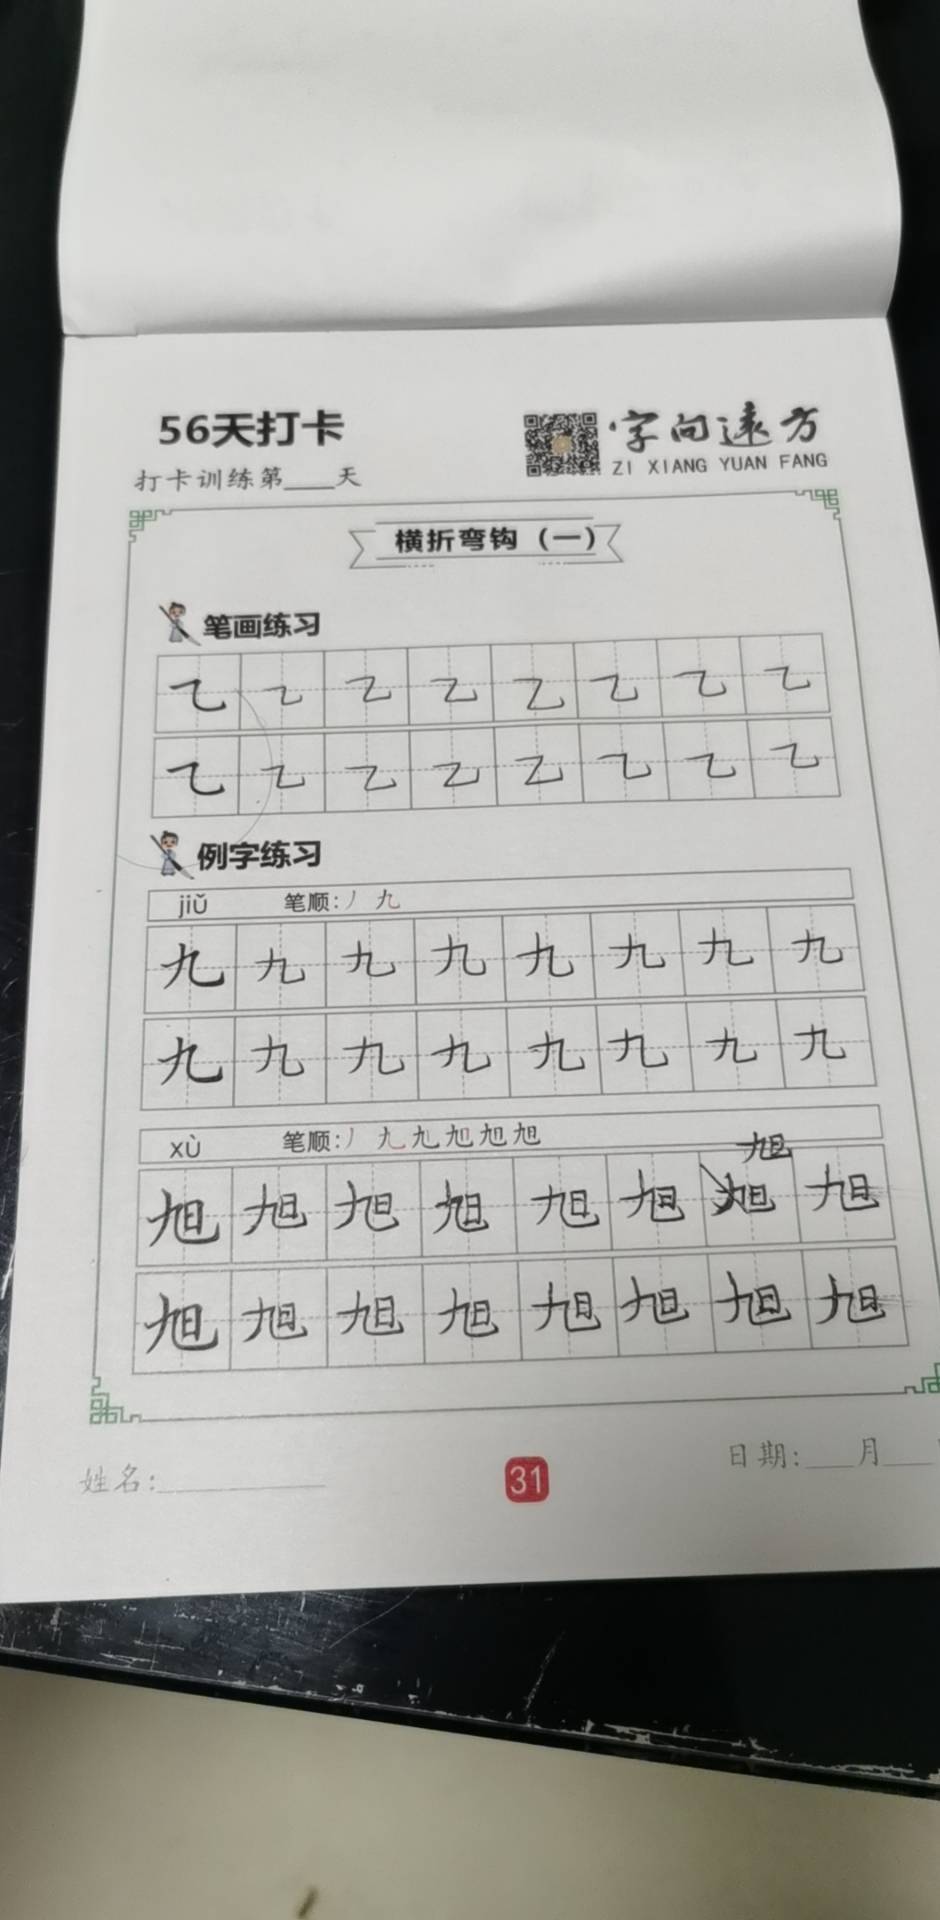 56天打卡
字向远方
ZI XIANG YUAN FANG
打卡训练第____天
横折弯钩（一）
笔画练习
乙 乙 乙 乙 乙 乙 乙 乙
乙 乙 乙 乙 乙 乙 乙 乙
例字练习
jiǔ 笔顺：丿 九
九 九 九 九 九 九 九 九
九 九 九 九 九 九 九 九
xù 笔顺：丿 九 九 旭 旭 旭
旭
旭 旭 旭 旭 旭 旭 旭 旭
旭 旭 旭 旭 旭 旭 旭 旭
姓名：____________
31
日期：____月____